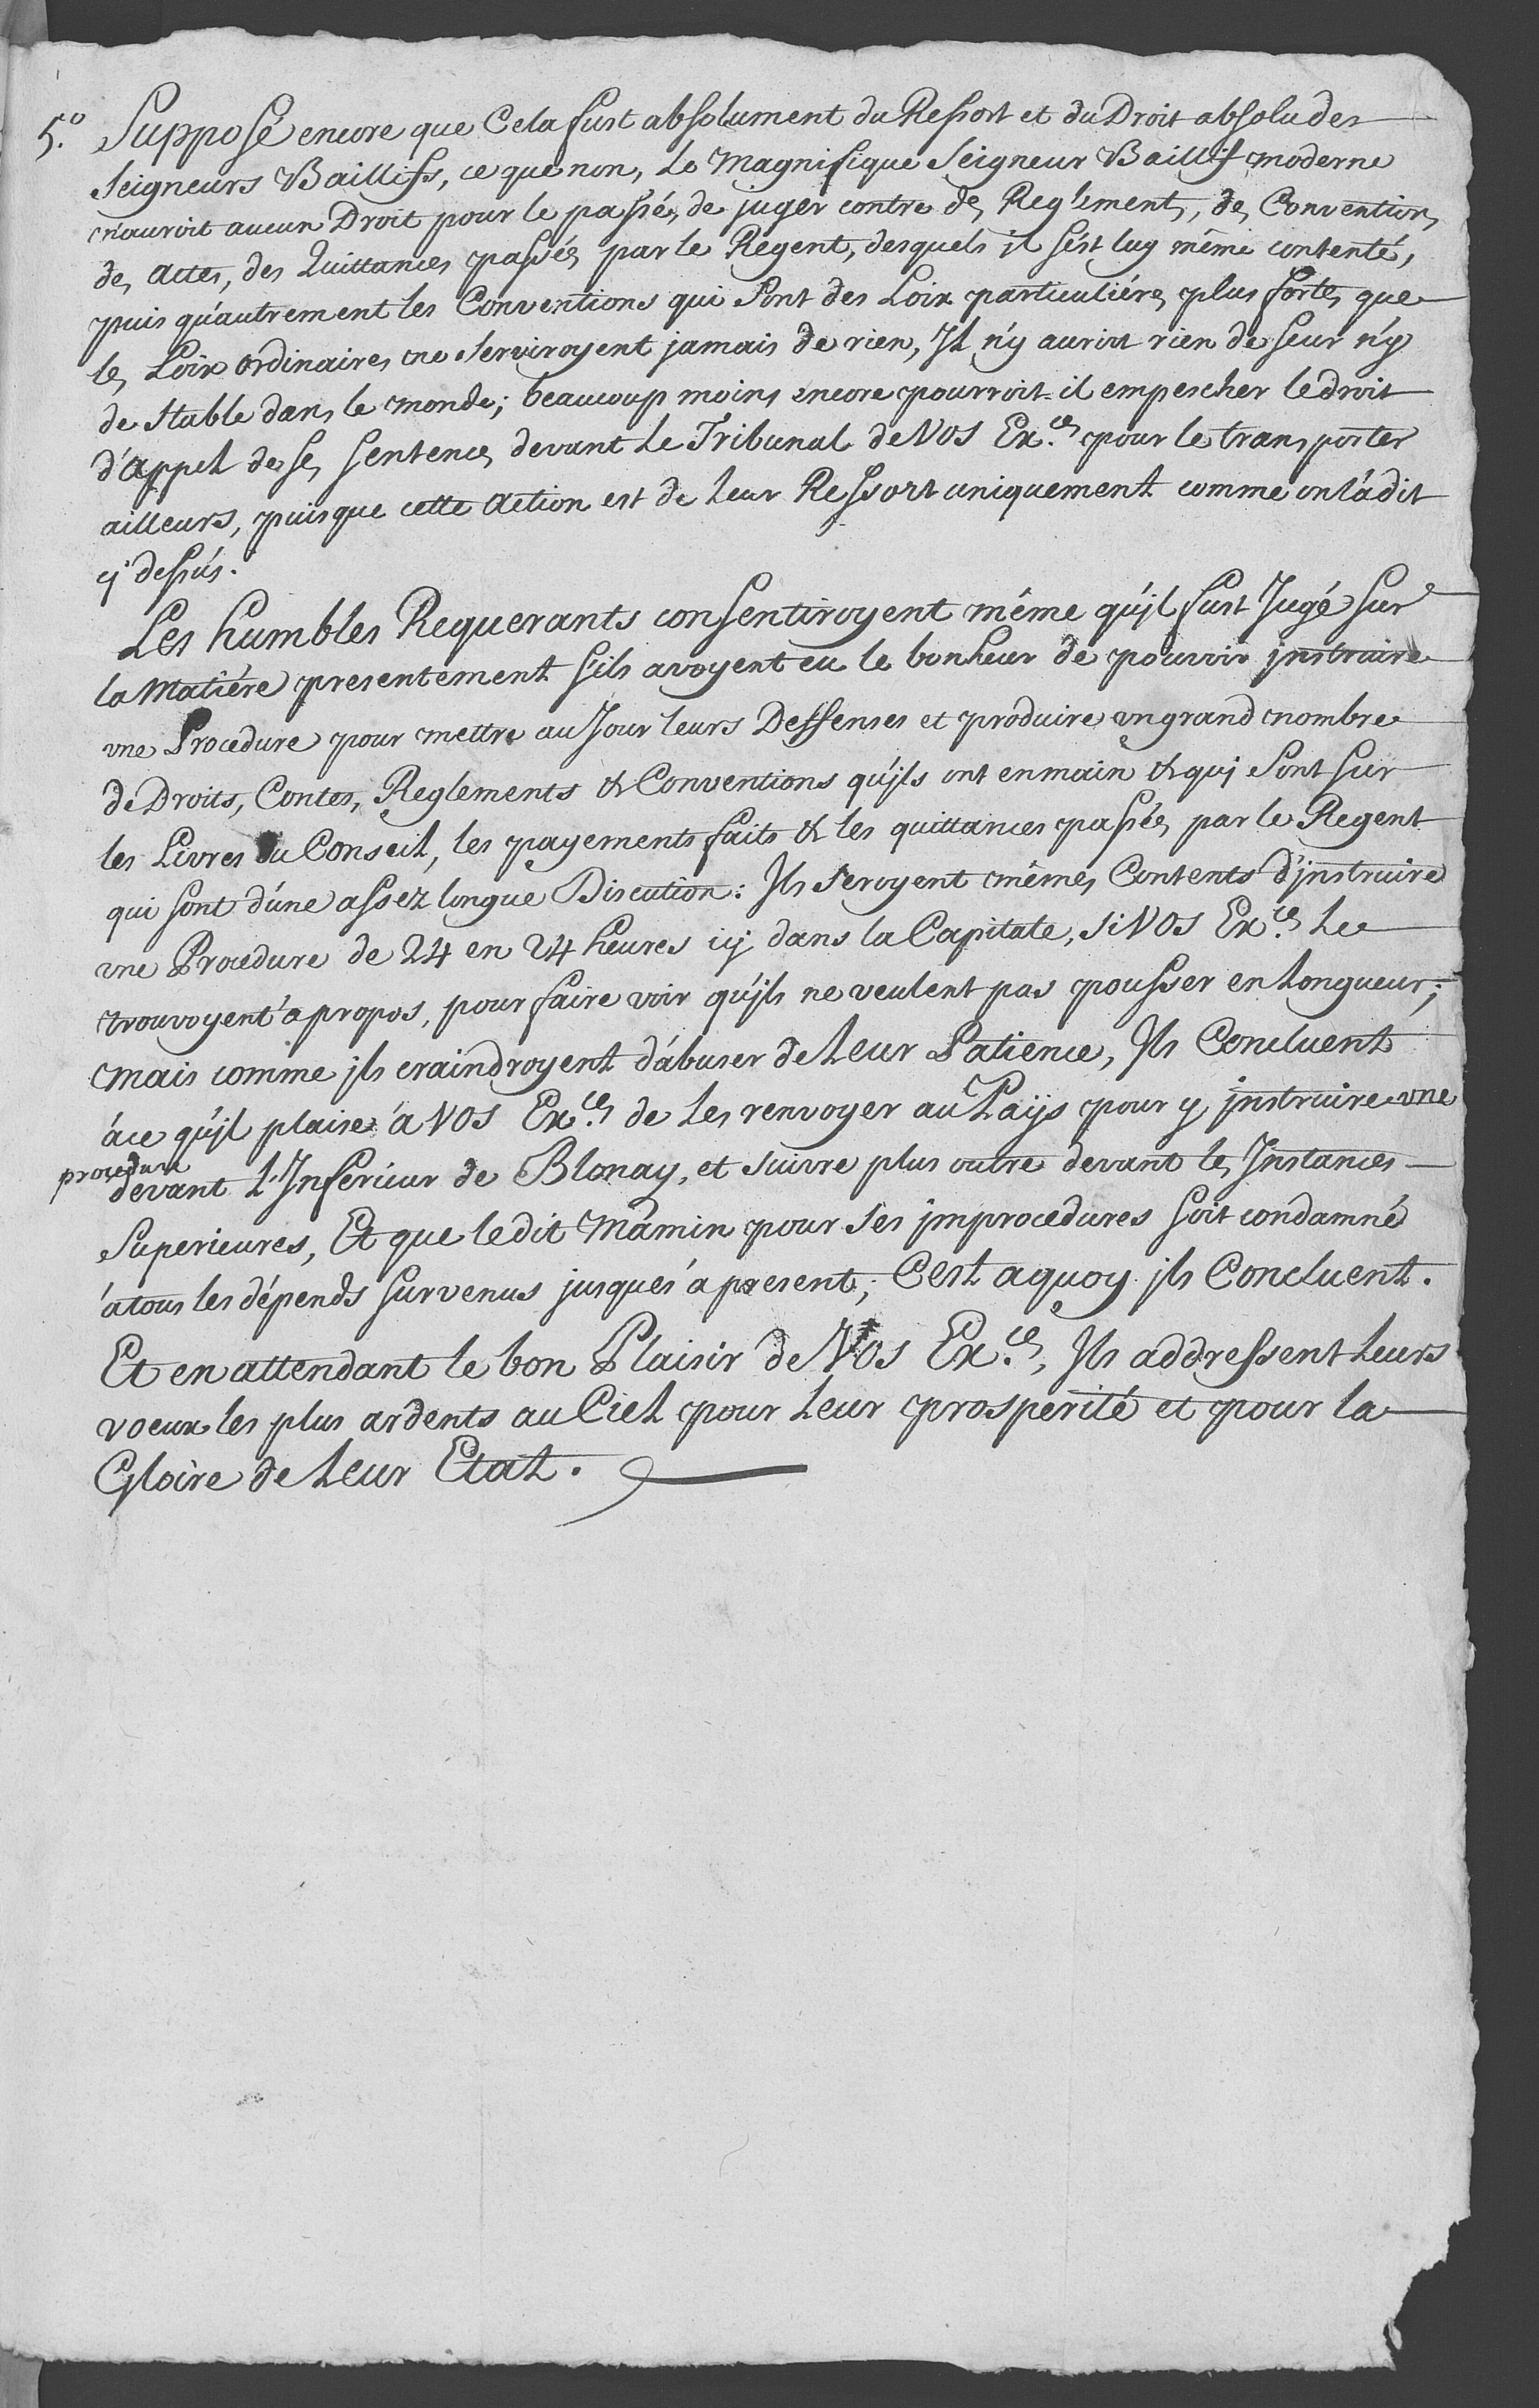 5.° Supposé encore que Cela fust absolument du Ressort et du Droit absolu des
Seigneurs Baillifs, ce que non, Le Magnifique Seigneur Baillif moderne
n'auroit aucun Droit pour le passé, de juger contre des Reglements, des Conventions,
des Actes, des Quittances passées par le Regent, desquels il s'ést luy même contenté,
puis qu'autrement les Conventions qui Sont des Loix particuliéres plus fortes que
les Loix ordinaires ne Serviroyent jamais de rien, Il n'y auroit rien de seur n'y
de Stable dans le monde; beaucoup moins encore pourroit-il empescher le droit
d'appel de ses sentences devant Le Tribunal de VOS Ex.ces pour le transporter
ailleurs, puisque cette Action est de Leur Ressort uniquement comme on l'a dit
cy dessus.
Les humbles Requerants consentiroyent même qu'jl fust Jugé sur
la Matiére presentement s'ils avoyent eu le bonheur de pouvoir jnstruire
une Procedure pour mettre au Jour leurs Deffenses et produire un grand nombre
de Droits, Contes, Reglements & Conventions qu'jls ont en main & quj Sont sur
les Livres du Conseil, les payements faits & les quittances passées par le Regent
qui sont d'une assez longue Discution: Jls Seroyent mêmes Contents d'jnstruire
une Procedure de 24 en 24 heures icy dans la Capitale, Si VOS Ex.ces Le
trouvoyent à propos, pour faire voir qu'jls ne veulent pas pousser en Longueur;
Mais comme jls craindroyent d'abuser de Leur Patience, Jls Concluent
à ce qu'jl plaise à VOS Ex.ces de Les renvoyer au Païs pour y jnstruire une
procedure
devant L'Inferieur de Blonay, et suivre plus outre devant les Instances
Superieures, Et que le dit Mamin pour Ses jmprocedures soit condamné
à tous les dépends survenus jusques à present; C'est a quoy jls Concluent.
Et en attendant le bon Plaisir de VOS Ex.ces, Jls addressent Leurs
voeux les plus ardents au Ciel pour Leur prosperité et pour la
Gloire de Leur Etat.